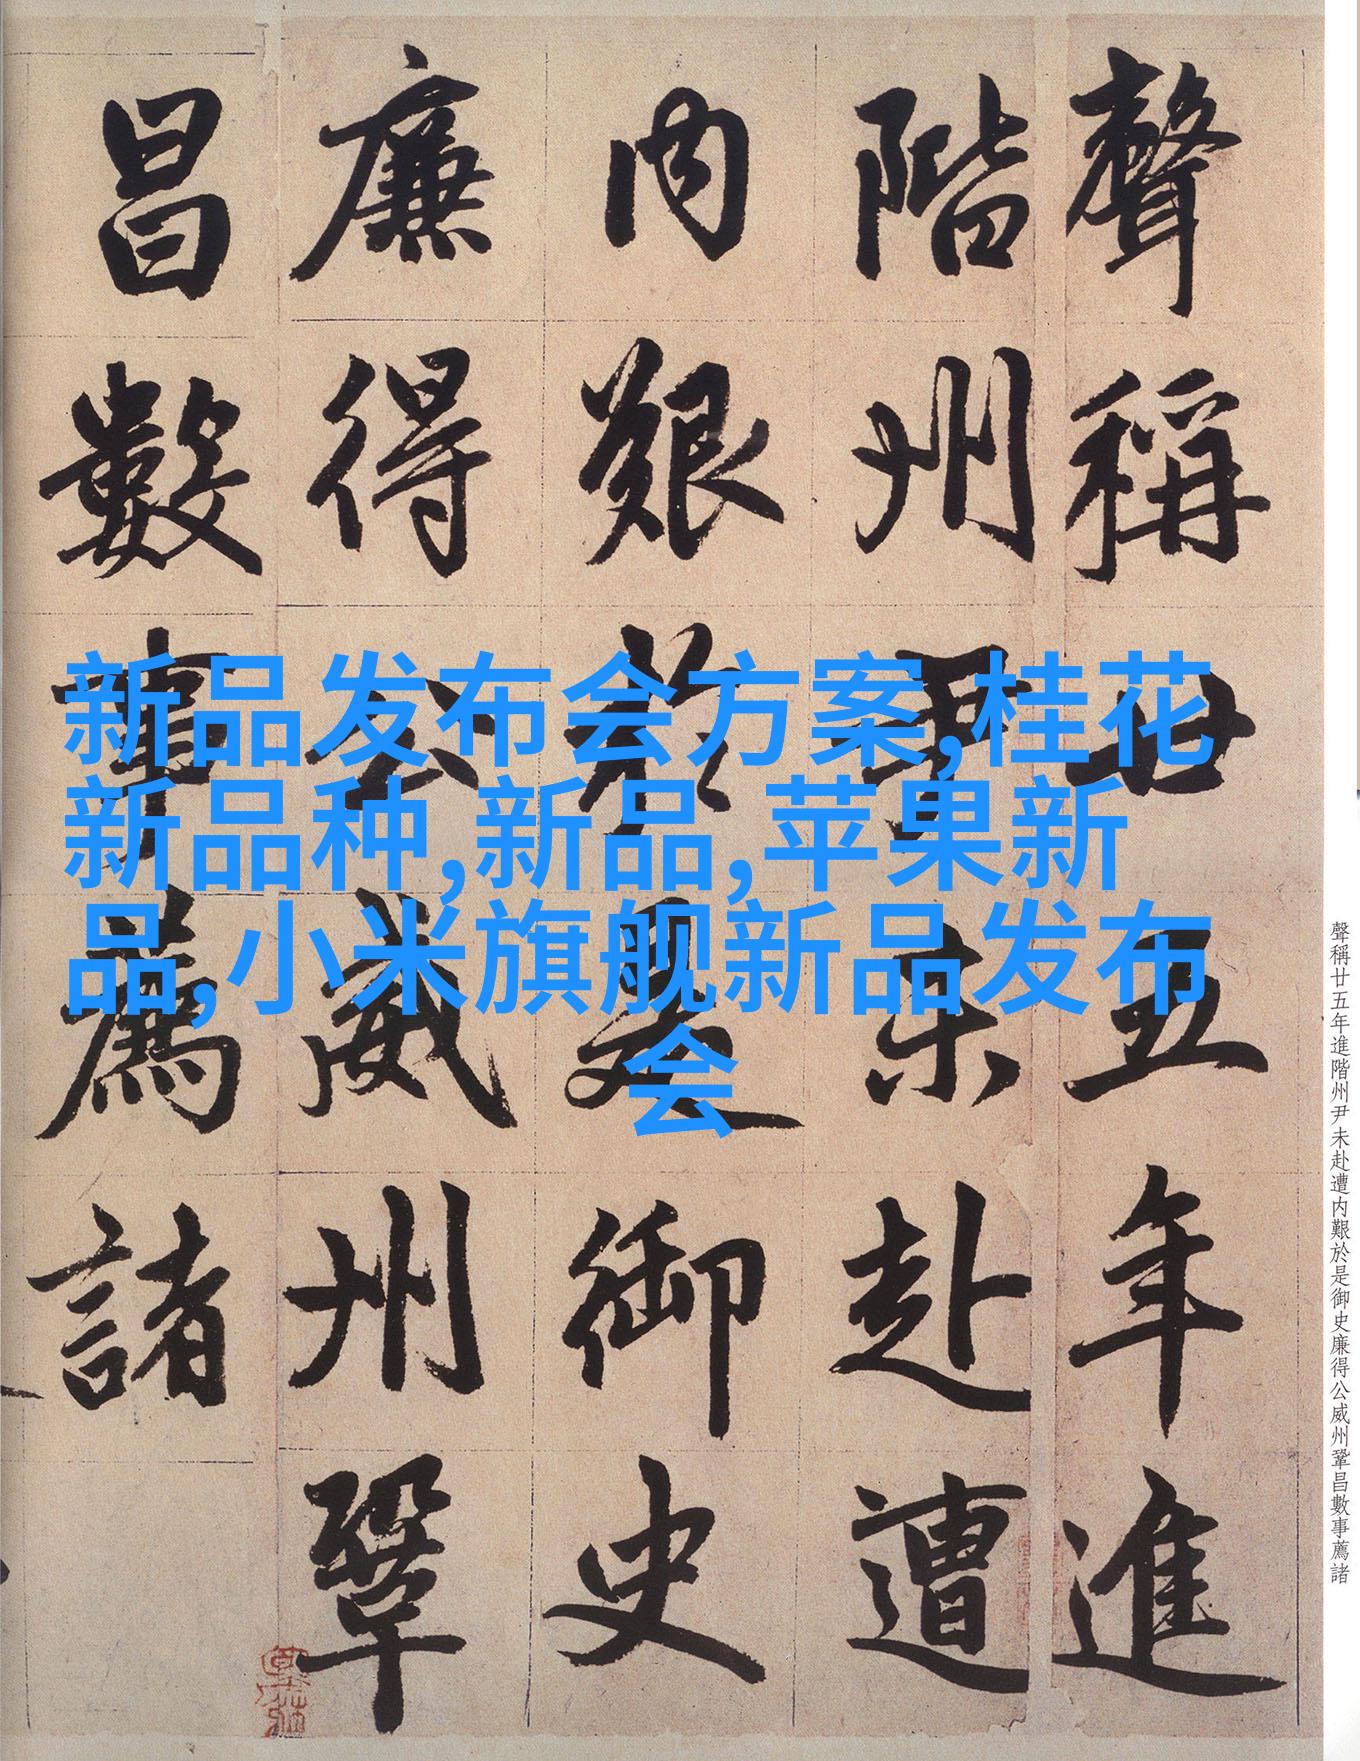 聲稱廿五年進
階州尹未赴遭
内艱於是御史
廉得公威州鞏
昌數事薦諸
新品发布会方案,桂花
新品种,新品,苹果新
品,小米旗舰新品发布
会
聲稱廿五年進階州尹未赴遭内艱於是御史廉得公威州鞏昌數事薦諸